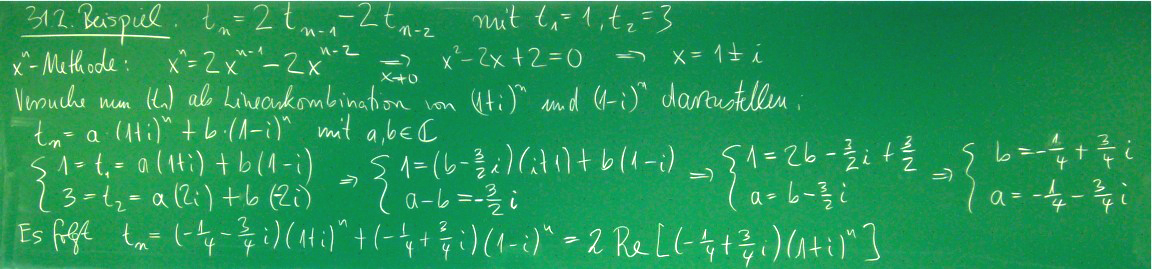 312. Beispiel. tₙ = 2tₙ₋₁ - 2tₙ₋₂ mit t₁ = 1, t₂ = 3
xⁿ-Methode: xⁿ = 2xⁿ⁻¹ - 2xⁿ⁻² ⇒ x≠0 x² - 2x + 2 = 0 ⇒ x = 1 ± i
Versuche nun (tₙ) als Linearkombination von (1+i)ⁿ und (1-i)ⁿ darzustellen:
tₙ = a·(1+i)ⁿ + b·(1-i)ⁿ mit a,b ∈ ℂ
{ 1 = t₁ = a(1+i) + b(1-i) ⇒ { 1 = (b - 3/2 i)(i+1) + b(1-i) ⇒ { 1 = 2b - 3/2 i + 3/2 ⇒ { b = -1/4 + 3/4 i
{ 3 = t₂ = a(2i) + b(-2i) { a - b = -3/2 i { a = b - 3/2 i { a = -1/4 - 3/4 i
Es folgt tₙ = (-1/4 - 3/4 i)(1+i)ⁿ + (-1/4 + 3/4 i)(1-i)ⁿ = 2 Re[(-1/4 + 3/4 i)(1+i)ⁿ]